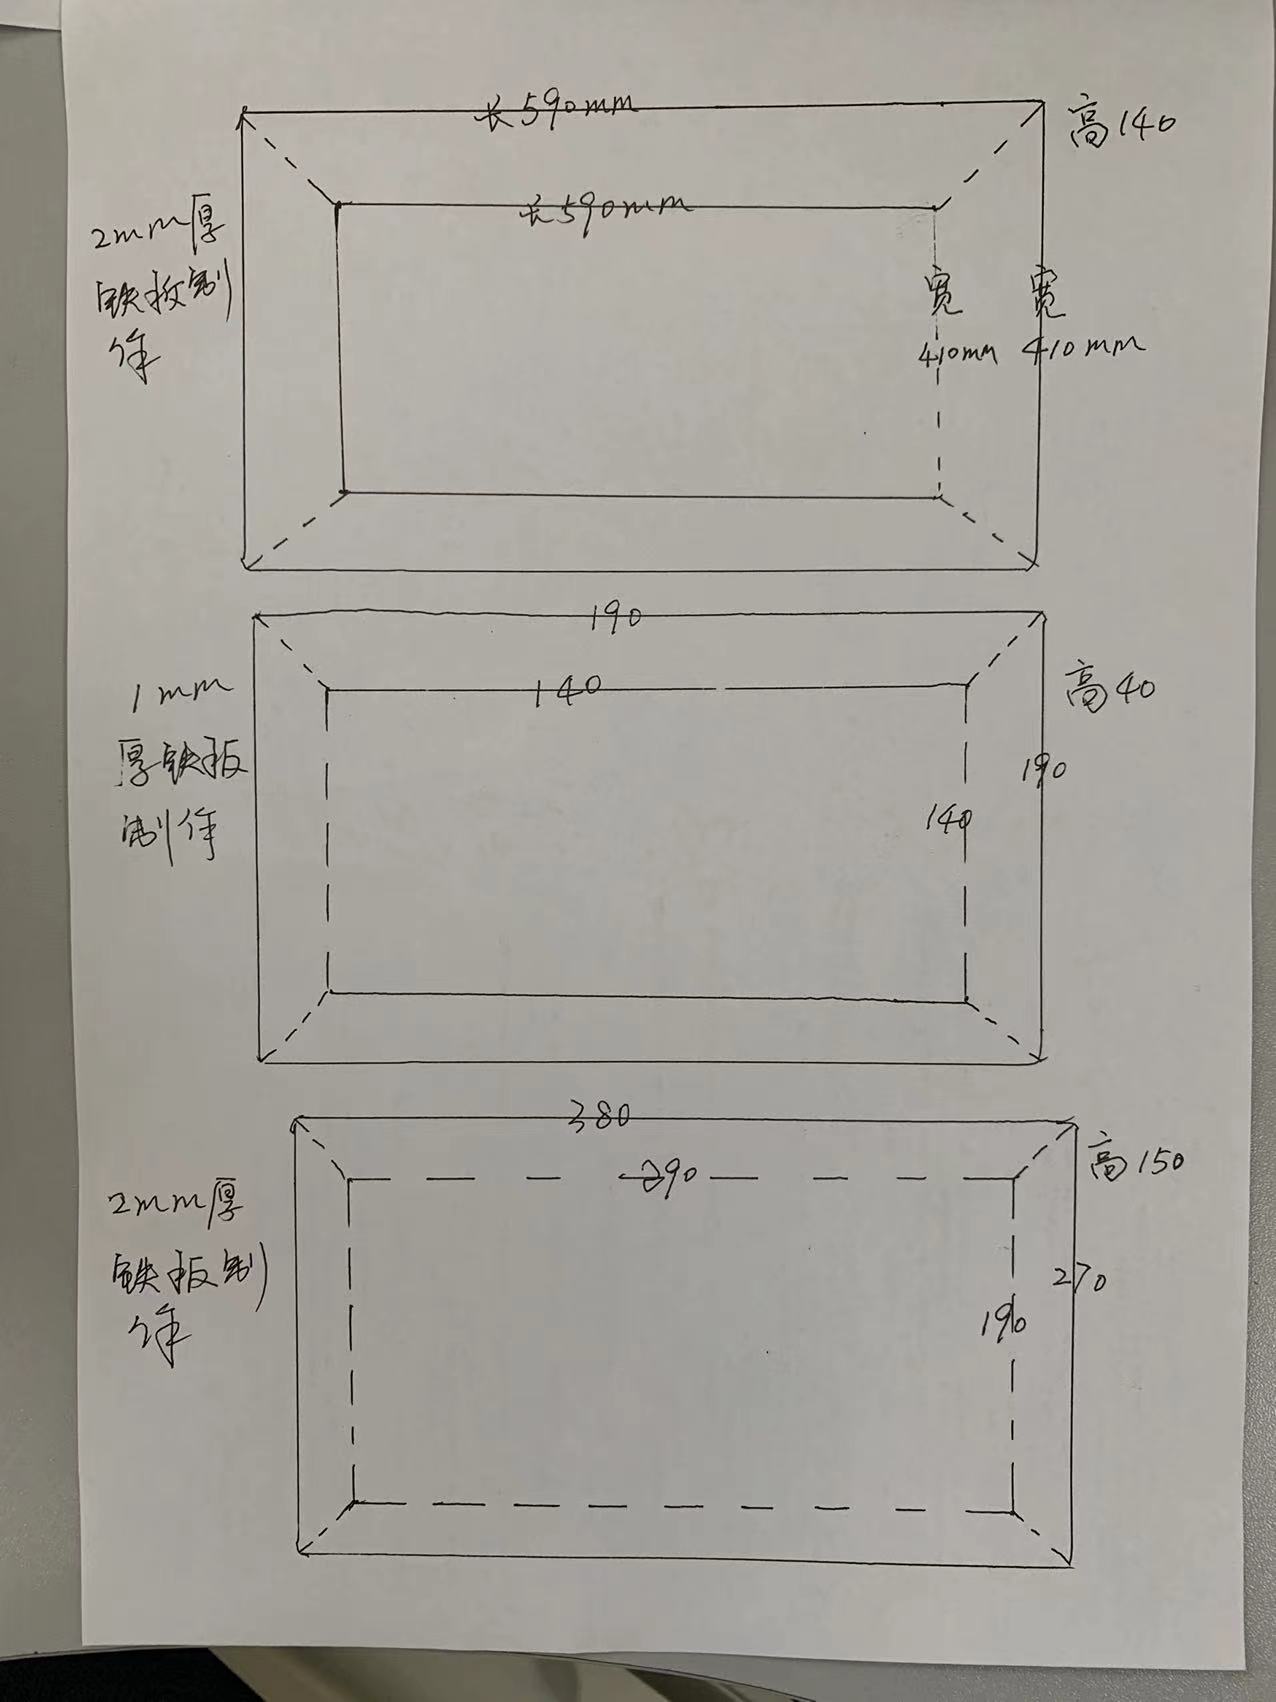 长590mm
高140
长590mm
2mm厚
铁板制
作
宽
410mm
宽
410mm
190
140
高40
1mm
厚铁板
制作
190
140
380
290
高150
2mm厚
铁板制
作
270
190